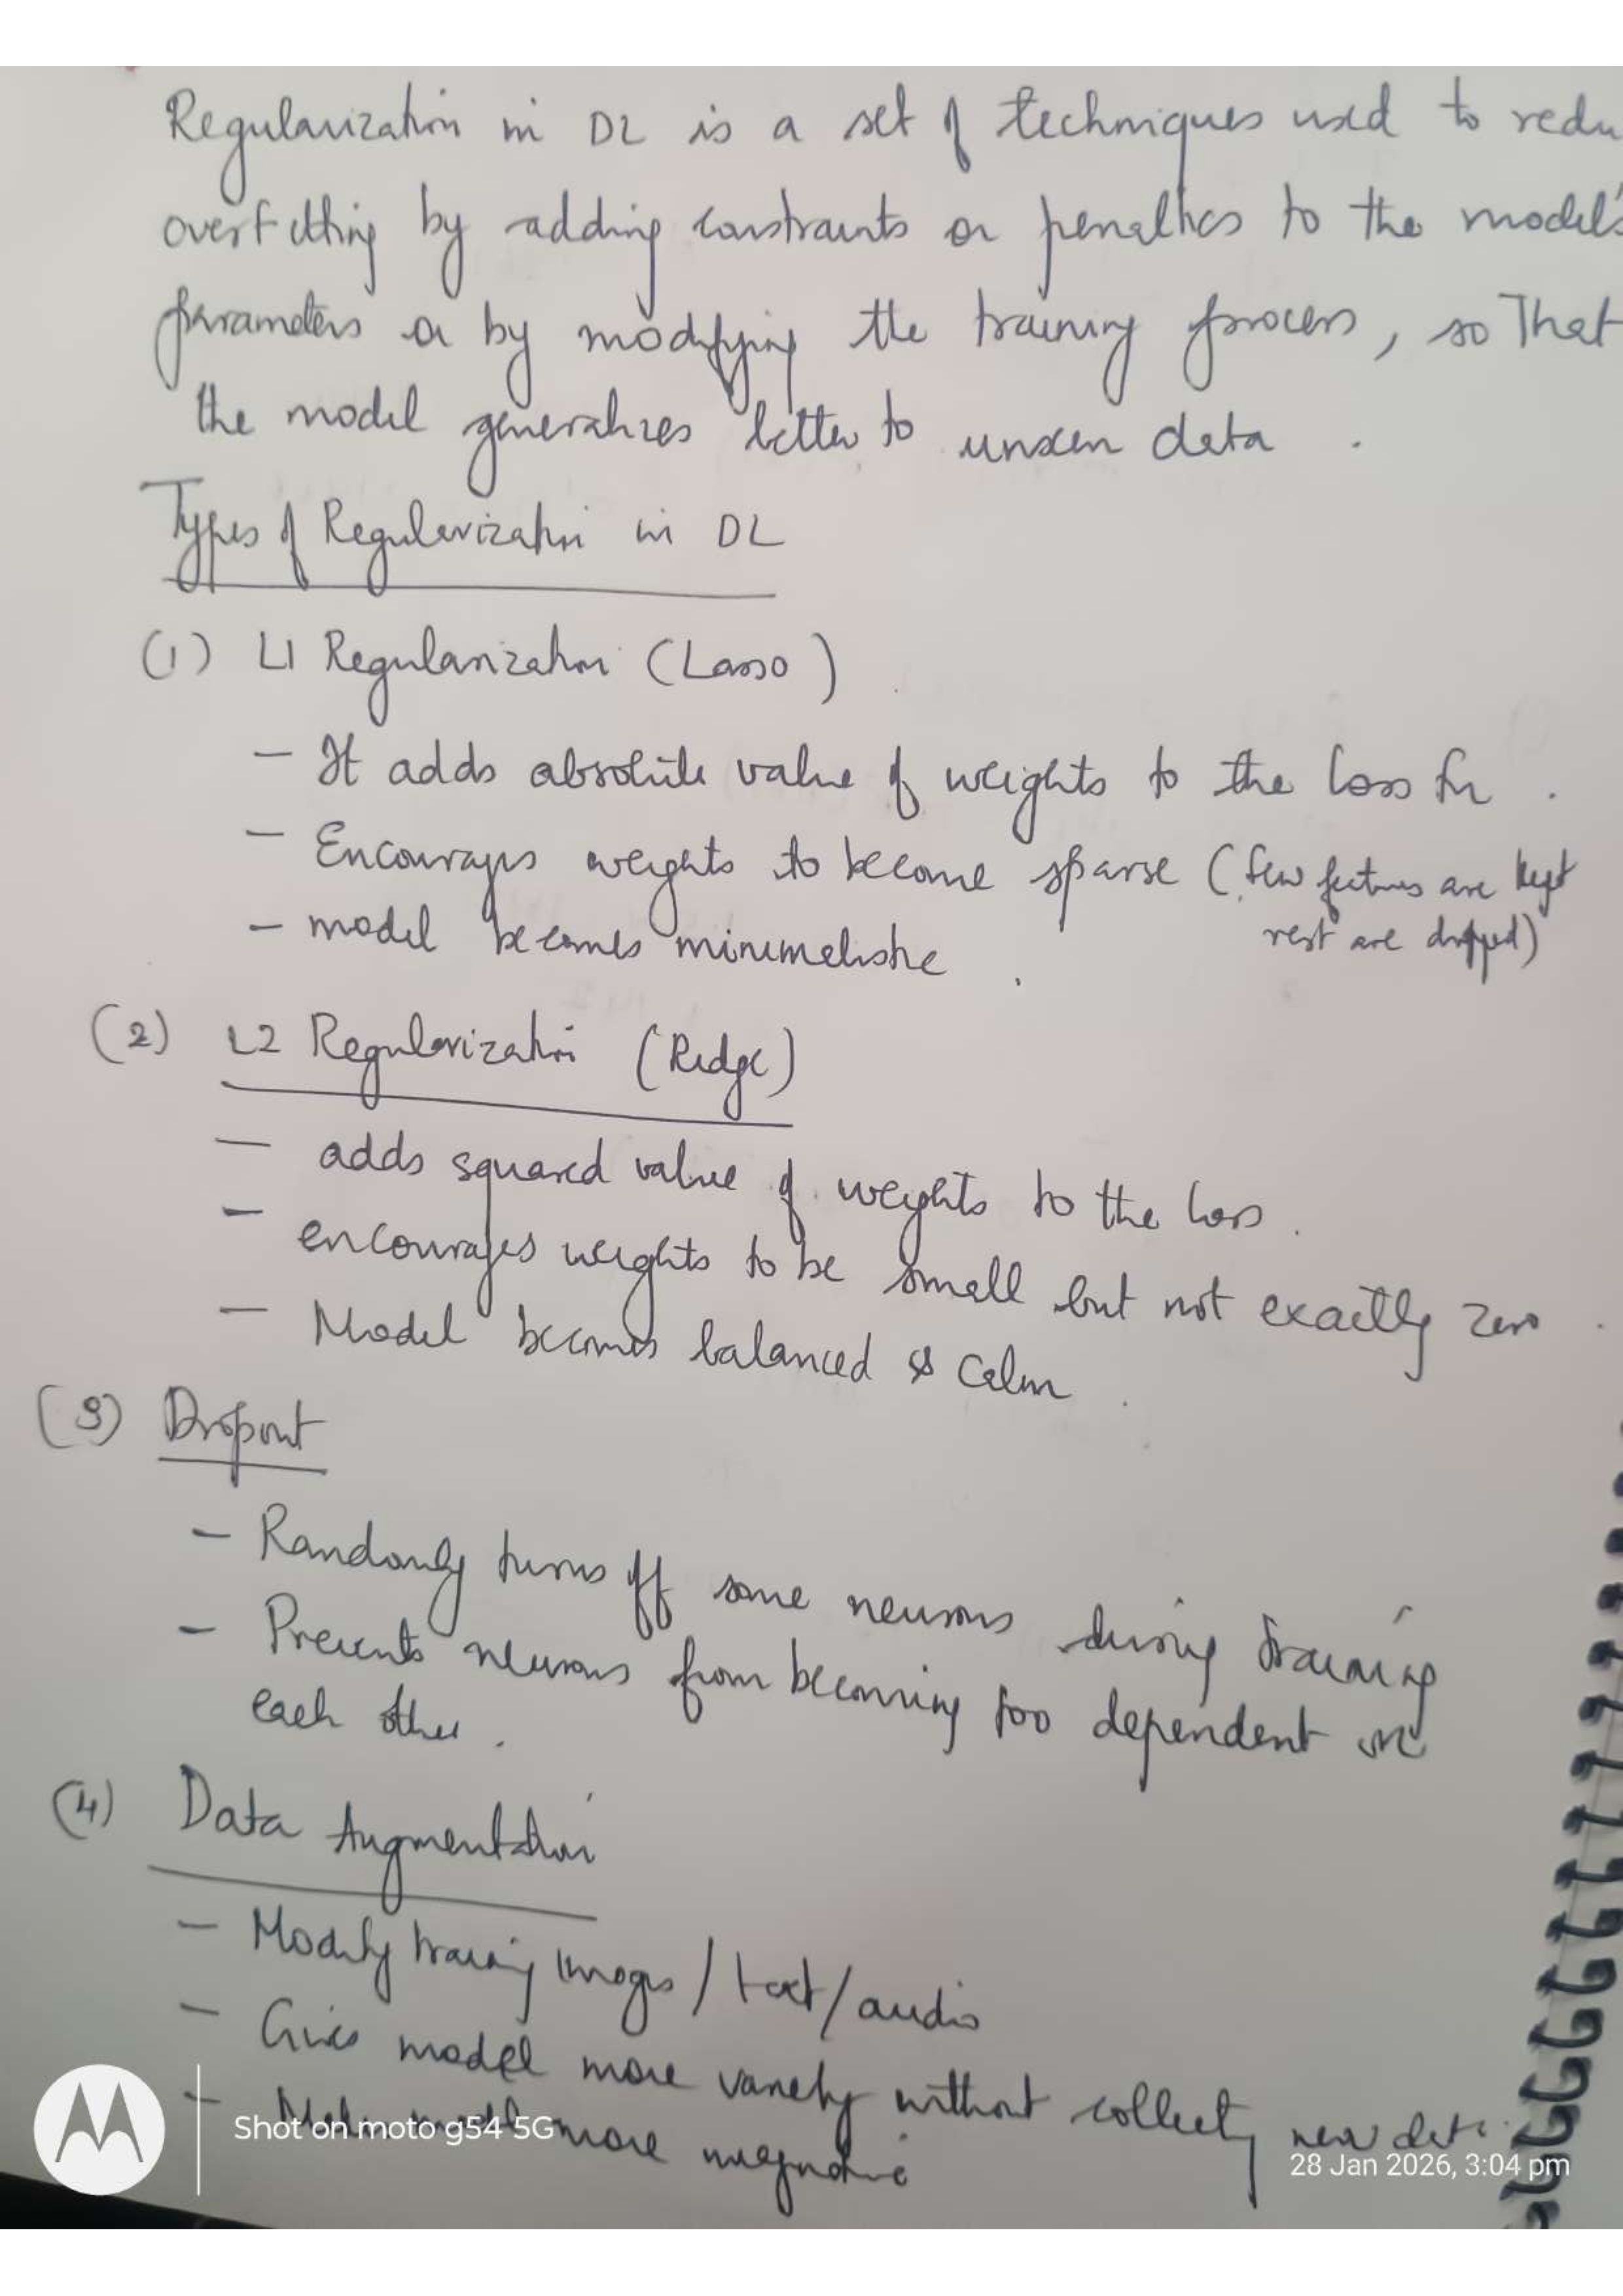 Regularization in DL is a set of techniques used to redu
overfitting by adding constraints or penalties to the model's
parameters or by modifying the training process, so that
the model generalizes better to unseen data .
Types of Regularization in DL
(1) L1 Regularization (Lasso)
- It adds absolute value of weights to the loss fn .
- Encourages weights to become sparse (few features are kept
rest are dropped)
- model becomes minimalistic .
(2) L2 Regularization (Ridge)
- adds squared value of weights to the loss .
- encourages weights to be small but not exactly zero .
- Model becomes balanced & calm .
(3) Dropout
- Randomly turns off some neurons during training
- Prevents neurons from becoming too dependent on
each other .
(4) Data Augmentation
- Modify training images / text / audio
- Gives model more variety without collecting new data .
- model more
Shot on moto g54 5G
28 Jan 2026, 3:04 pm